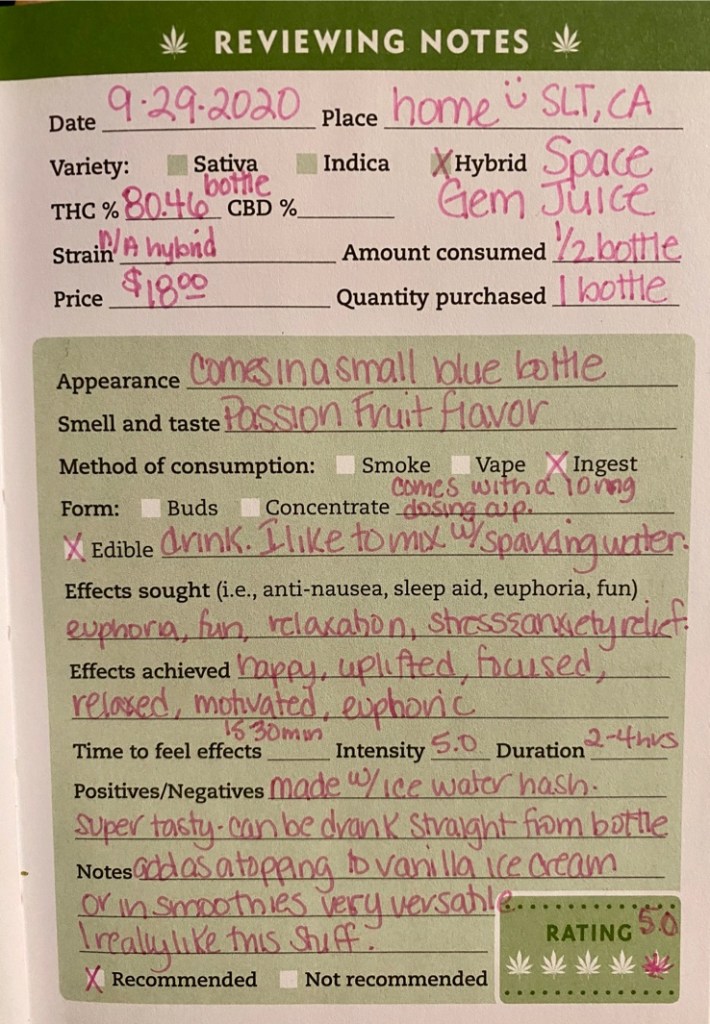 REVIEWING NOTES
Date 9·29·2020 Place home SLT, CA
Variety: Sativa Indica X Hybrid Space
THC % 80.46 bottle CBD % Gem Juice
Strain N/A hybrid Amount consumed 1/2 bottle
Price $18.00 Quantity purchased 1 bottle
Appearance comes in a small blue bottle
Smell and taste Passion Fruit flavor
Method of consumption: Smoke Vape X Ingest
Form: Buds Concentrate comes with a 10mg dosing cup.
X Edible drink. I like to mix w/ sparkling water.
Effects sought (i.e., anti-nausea, sleep aid, euphoria, fun)
euphoria, fun, relaxation, stress & anxiety relief.
Effects achieved happy, uplifted, focused,
relaxed, motivated, euphoric
Time to feel effects 15 30min Intensity 5.0 Duration 2-4hrs
Positives/Negatives made w/ ice water hash.
super tasty - can be drank straight from bottle
Notes add as a topping to vanilla ice cream
or in smoothies very versatile
I really like this stuff.
RATING 5.0
X Recommended Not recommended